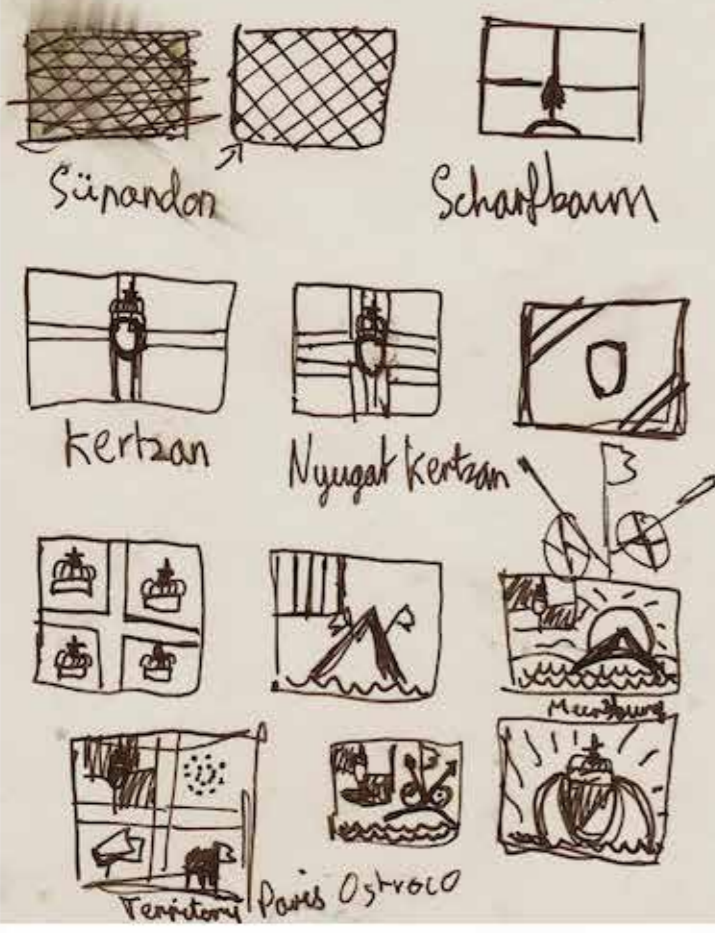 Sünandon
Scharfbaum
Kertzan
Nyugat Kertzan
Meersburg
Territory Paris Ostroco